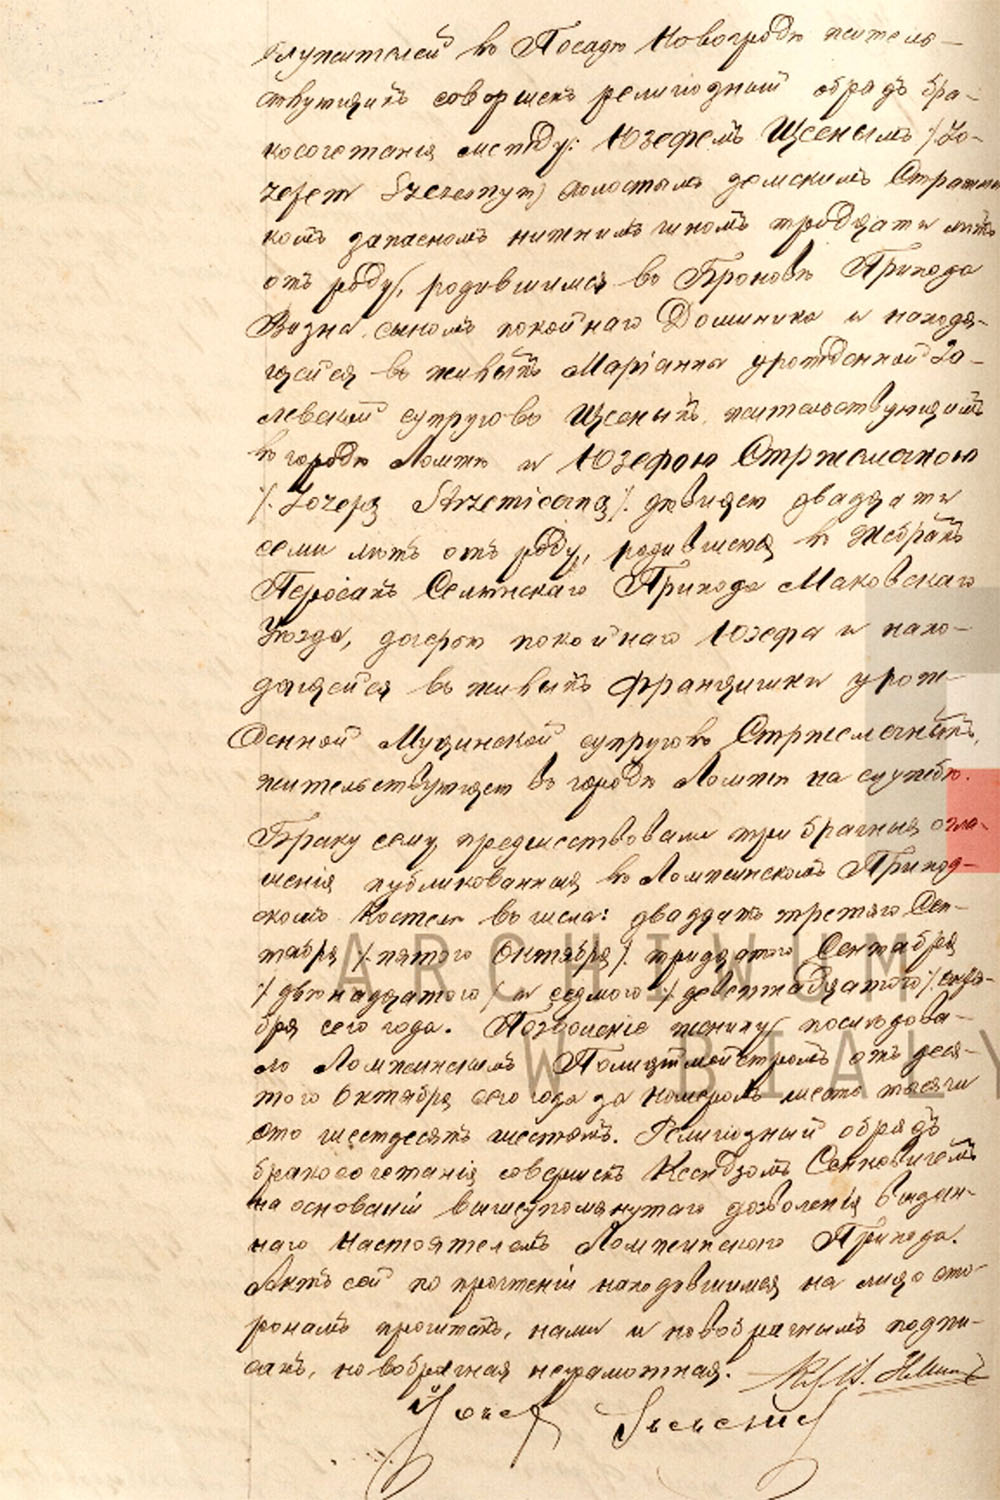 служителей въ Посадѣ Новогродѣ житель-
ствующихъ совершенъ религіозный обрядъ бра-
косочетанія между: Юзефемъ Щеснымъ /: Jo-
zefem Szczesnym) холостымъ земскимъ Стражни-
комъ запаснымъ нижнимъ чиномъ тридцати лѣтъ
отъ роду, родившимся въ Броновѣ Прихода
Визна сыномъ покойнаго Доминика и находя-
щейся въ живыхъ Маріанны урожденной За-
левской супруговъ Щесныхъ, жительствующимъ
въ городѣ Ломжѣ и Юзефою Стржемечною
/: Józefą Strzemieczną /: дѣвицею двадцати
семи лѣтъ отъ роду, родившеюся въ Жебрахъ
Перосахъ Селюнскаго Прихода Маковскаго
Уѣзда, дочерью покойнаго Юзефа и нахо-
дящейся въ живыхъ Францишки урож-
денной супруговъ Стржемечныхъ,
жительствующею въ городѣ Ломжѣ на службѣ.
Браку сему предшествовали три брачныя огла-
шенія публикованныя въ Ломжинскомъ Приход-
скомъ Костелѣ въ числа: двадцать третяго Сен-
тября /: пятого Октября /: тридцатого Сентября
/: двѣнадцатого / и седмого /: девятнадцатого /: Октя-
бря сего года. Позволеніе жениху послѣдова-
ло Ломжинскимъ Полицмейстромъ отъ деся-
того Октября сего года за номеромъ шесть тысячи
сто шестдесятъ шестымъ. Религіозный обрядъ
бракосочетанія совершенъ Ксендзомъ Сенкевичемъ
на основаніи вышеупомянутаго дозволенія выдан-
наго Настоятелемъ Ломжинскаго Прихода.
Актъ сей по прочтеніи находившимся на лицо сто-
ронамъ прочитанъ, нами и новобрачнымъ подпи-
санъ, новобрачная неграмотная.
Józef Szczesny
ARCHIWUM
W BIAŁY